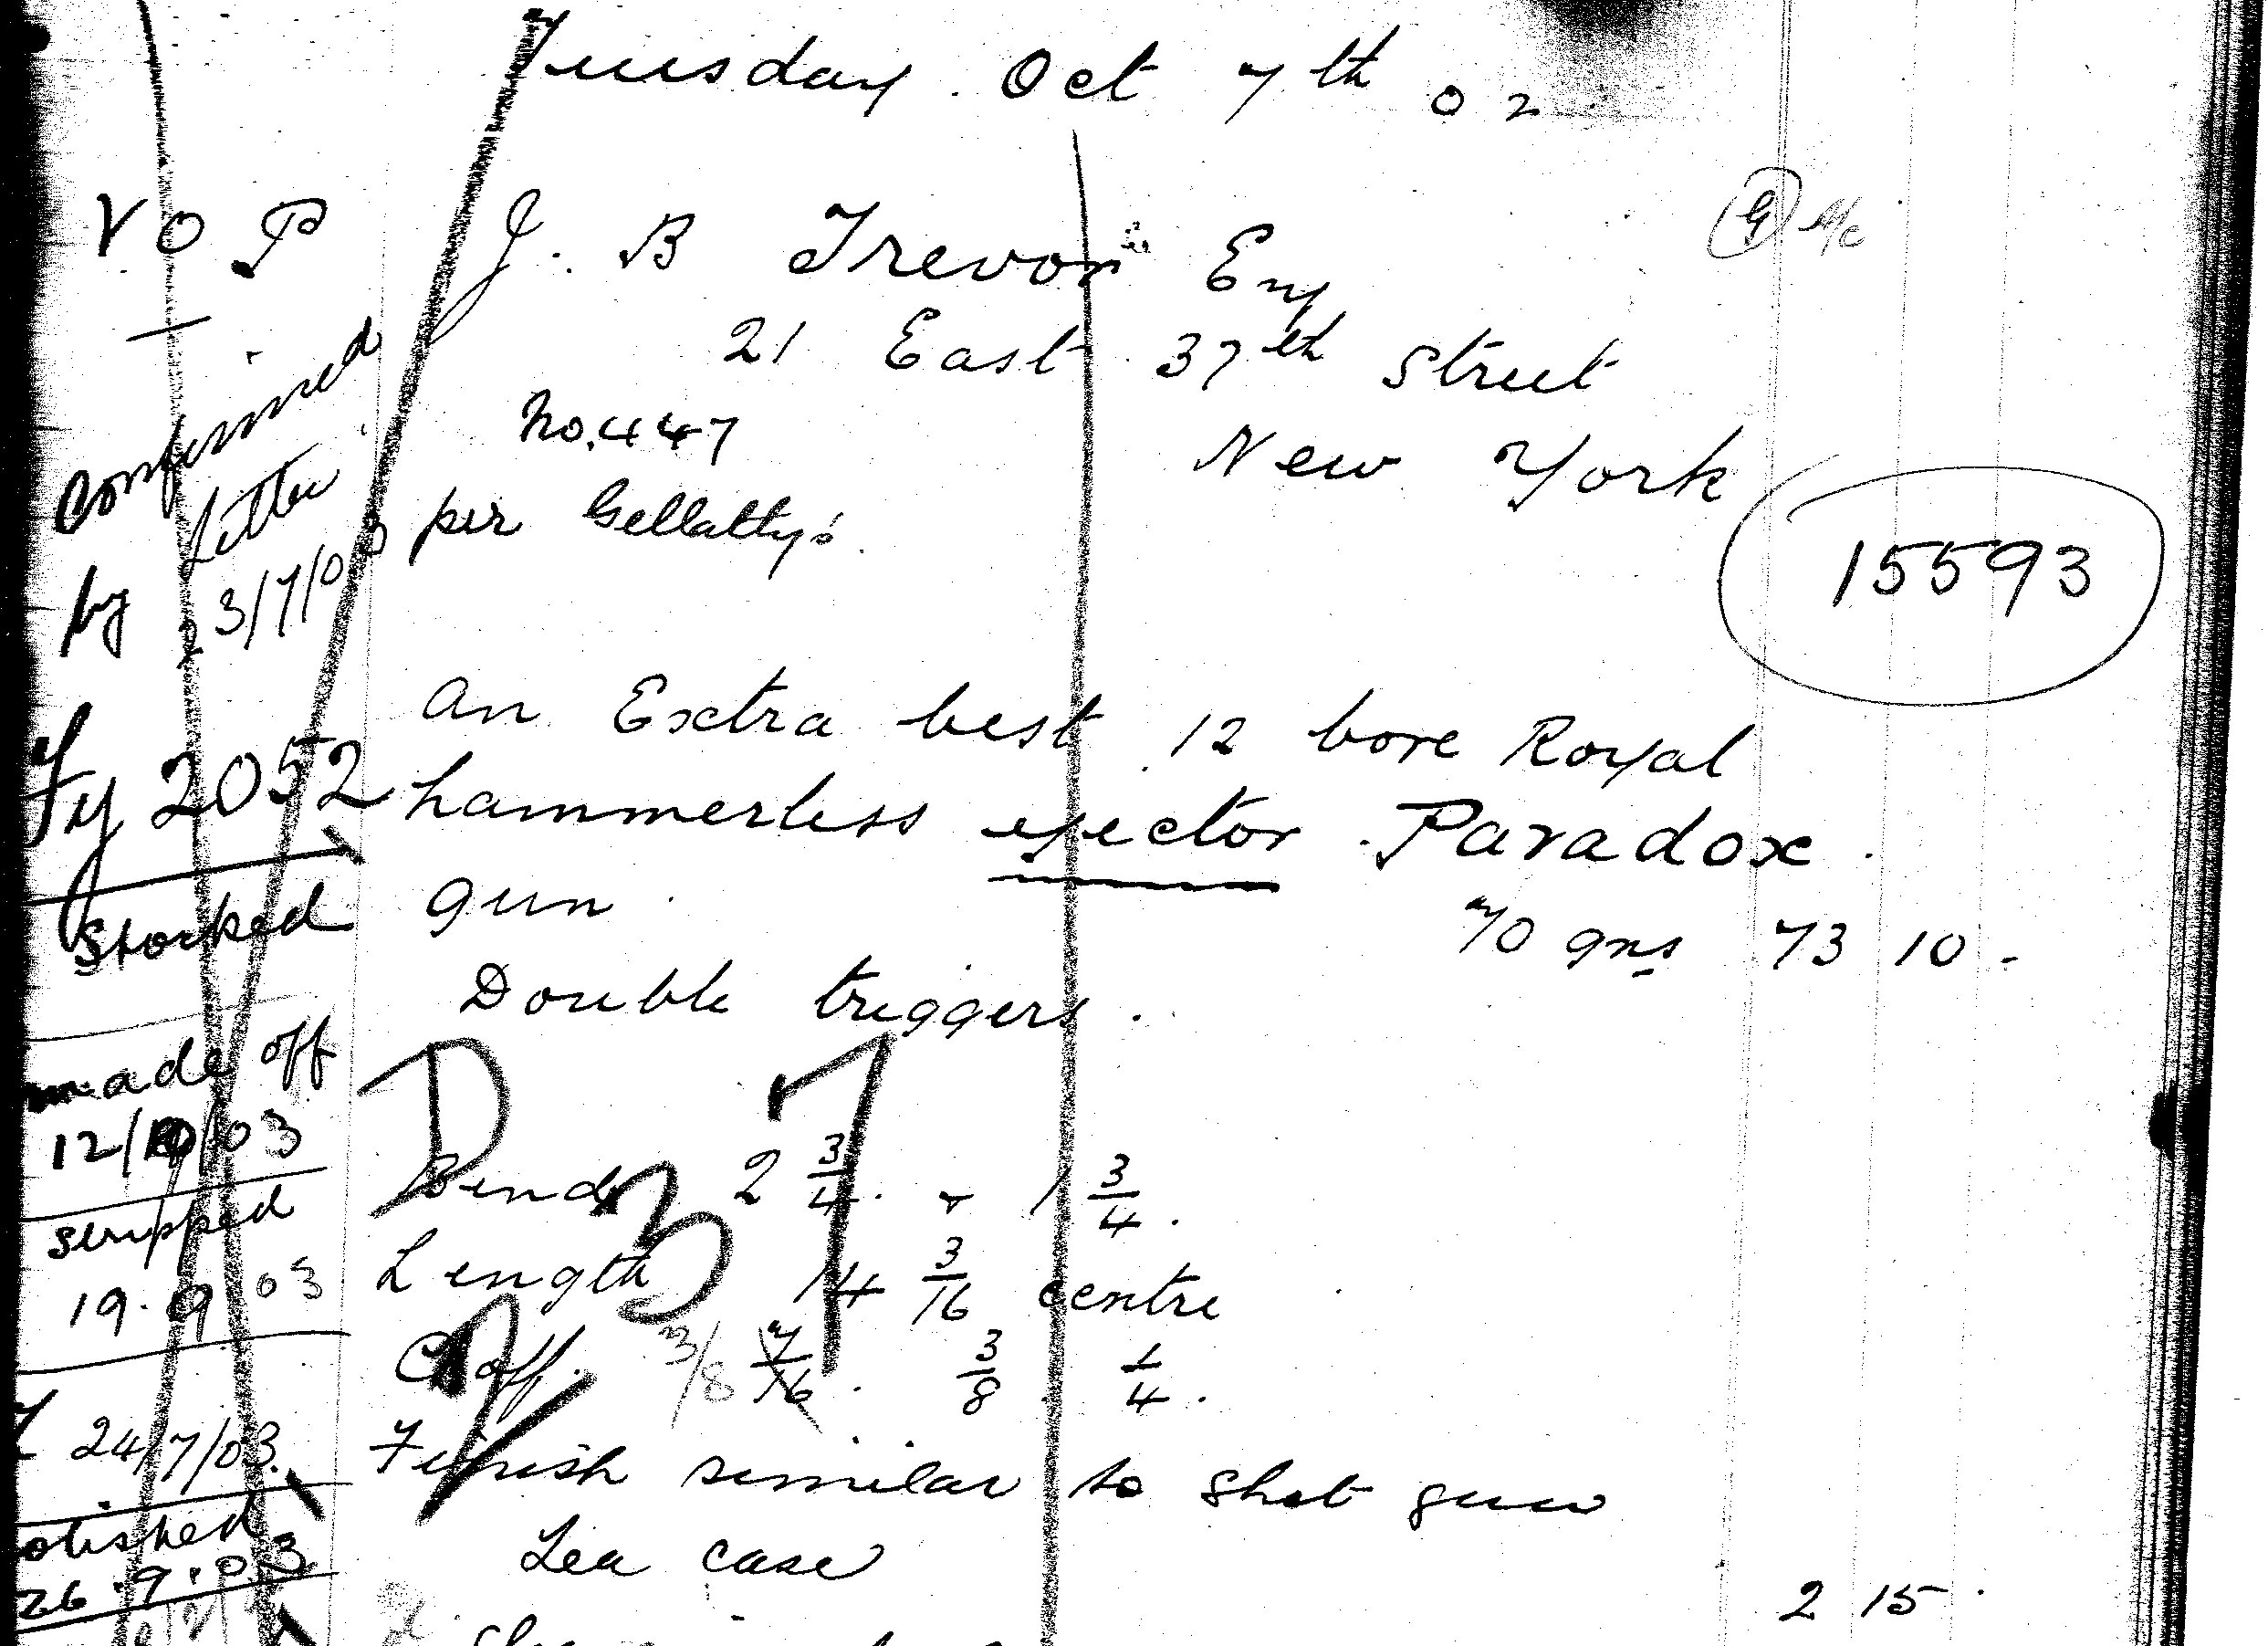 Tuesday. Oct 7th 02
V O P
J. B Trevor Esq
21 East 37th Street
New York
No. 447
per Gellatly's.
15593
Confirmed
by Letter
23/7/03
An Extra best 12 bore Royal
hammerless ejector Paradox.
gun.
70 gns 73 10 -
Double triggers.
Fy 2052
Stocked
made off
12/ /03
stripped
19.9 03
24/7/03.
26.9.03
D 37
Bend 2 3/4. - 1 3/4.
Length 14 3/16 centre
C off. 3/8 7/16. 3/8 1/4.
Finish similar to shot gun
Lea case
2 15.